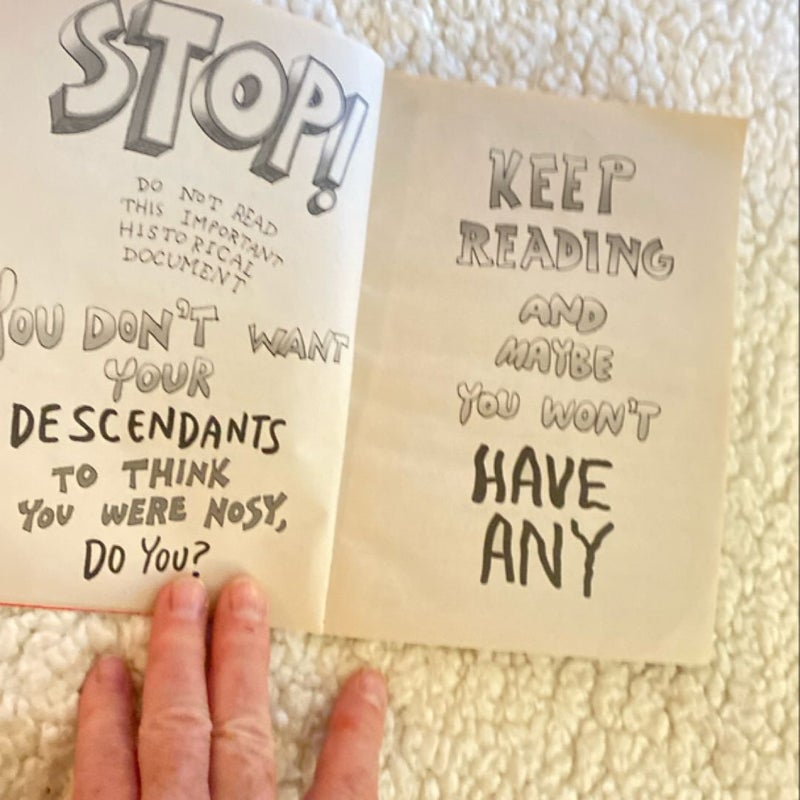 STOP!
DO NOT READ
THIS IMPORTANT
HISTORICAL
DOCUMENT
YOU DON'T WANT
YOUR
DESCENDANTS
TO THINK
YOU WERE NOSY,
DO YOU?
KEEP
READING
AND
MAYBE
YOU WON'T
HAVE
ANY